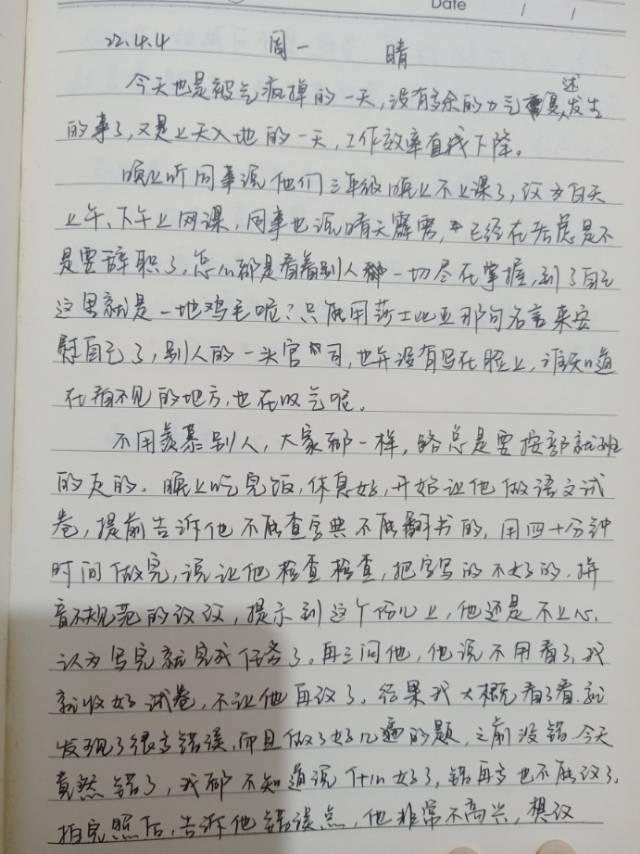 Date / /
22.4.4 周一 晴
今天也是被气疯掉的一天,没有多余的力气复述发生
的事了,又是上天入地的一天,工作效率直线下降。
晚上听同事说他们三年级晚上不上课了,改为白天
上午、下午上网课,同事也说晴天霹雳,已经在考虑是不
是要辞职了,怎么都是看着别人一切尽在掌握,到了自己
这里就是一地鸡毛呢?只能用莎士比亚那句名言来安
慰自己了,别人的一头官司,也并没有写在脸上,谁知道
在看不见的地方,也在叹气呢。
不用羡慕别人,大家都一样,路总是要按部就班
的走的。晚上吃完饭,休息好,开始让他做语文试
卷,提前告诉他不能查字典不能翻书的,用四十分钟
时间做完,说让他检查检查,把字写的不好的,拼
音不规范的改改,提示到这个份儿上,他还是不上心,
认为写完就完成任务了。再三问他,他说不用看了,我
就收好试卷,不让他再改了。结果我大概看了看,就
发现了很多错误,而且做了好几遍的题,之前没错,今天
竟然错了,我都不知道说什么好了,错再多也不能改了。
拍完照后,告诉他错误点,他非常不高兴,想改